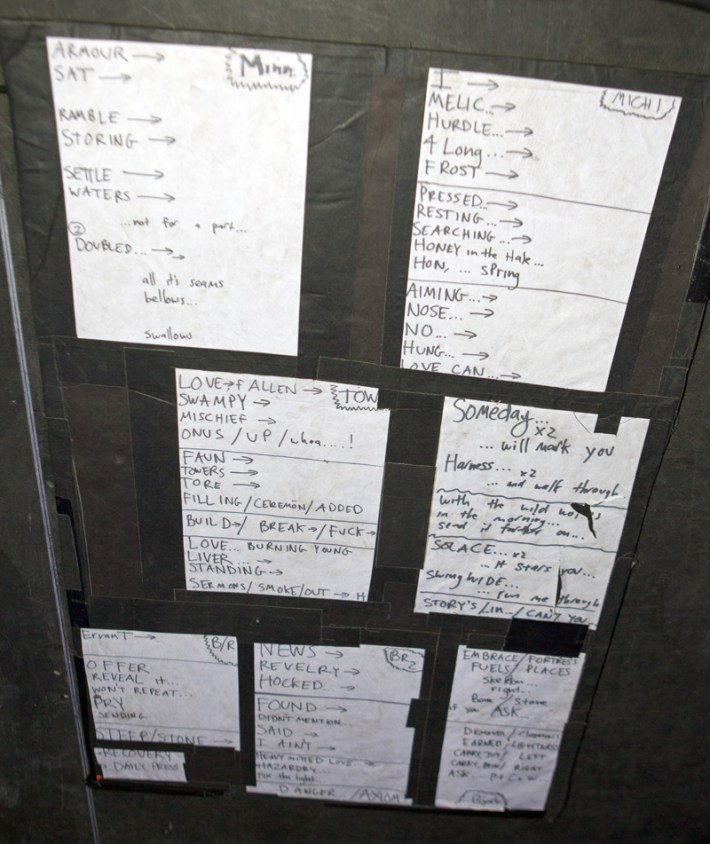 ARMOUR →
Minn.
SAT →
RAMBLE →
STORING →
SETTLE →
WATERS →
...not for a part...
②
DOUBLED... →
all it's seams
bellows...
swallows
I →
MICHI
MELIC... →
HURDLE... →
4 Long... →
FROST →
PRESSED... →
RESTING... →
SEARCHING... →
HONEY in the Hale...
HON, ... SPRING
AIMING... →
NOSE... →
NO... →
HUNG... →
LOVE CAN... →
LOVE → FALLEN →
TOW
SWAMPY →
MISCHIEF →
ONUS / UP / whoa....!
FAUN →
TOWERS →
TORE →
FILLING / CEREMON / ADDED
BUILD → / BREAK → / FUCK →
LOVE... BURNING YOUNG
LIVER... →
STANDING →
SERMONS / SMOKE / OUT → H
Someday...
x2
... will mark you
Harness... x2
... and walk through
with the wild
in the morning...
send it further on...
SOLACE... x2
... it stars you...
Swing WIDE...
... run me through
STORY'S / Lin... / CAN'T YOU
ErranT →
B/R
OFFER
REVEAL it...
WON'T REPEAT...
PRY
SENDING
STEEP / STONE →
RECOVERY
DAILY PRESS
NEWS →
BR 2
REVELRY →
HOCKED... →
FOUND →
DIDN'T MENTION...
SAID →
I AIN'T →
HEAVY MIXED LOVE →
HAZARDRY...
For the light
DANGER / AXIOM
EMBRACE / FORTRESS
FUELS / PLACES
right...
Bone / Stone
if you ASK...
EARNED / LIGHTNESS
CARRY / LEFT
CARRY / RIGHT
ASK...